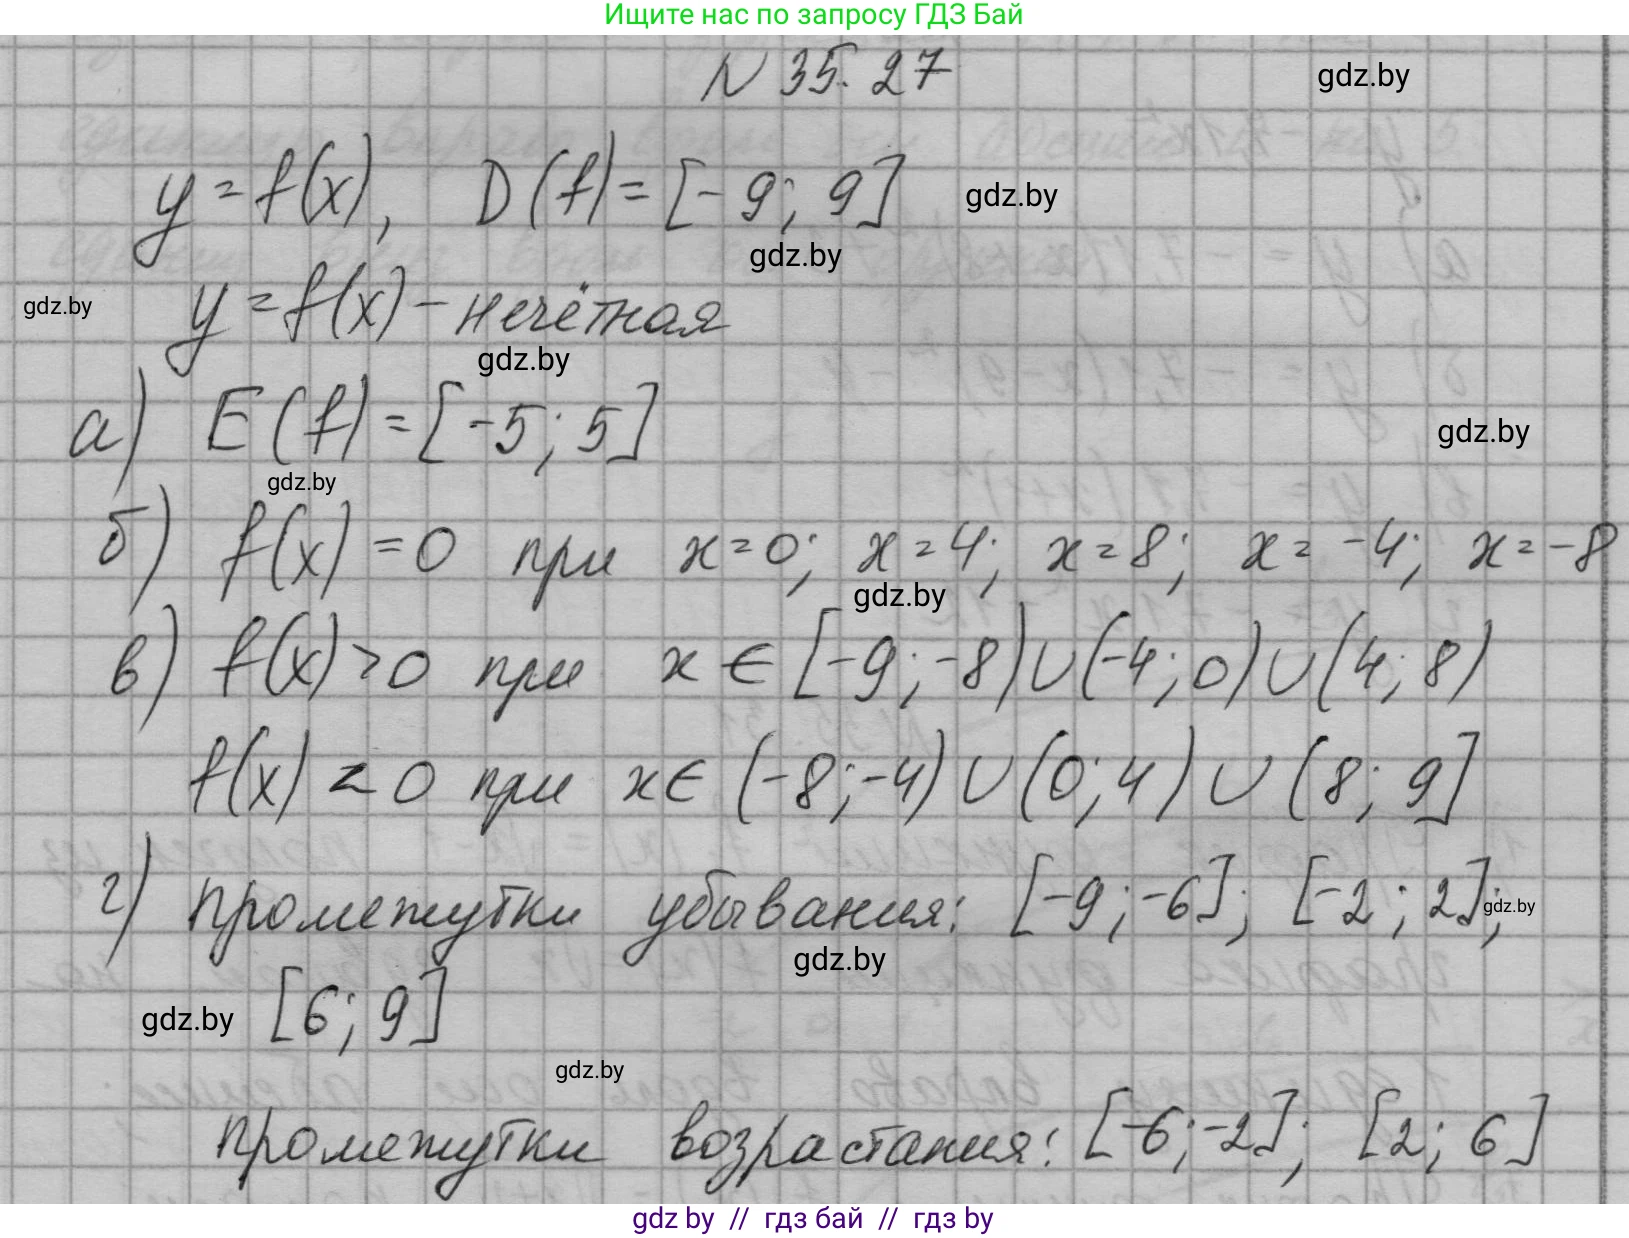 Ищите нас по запросу ГДЗ Бай
N 35.27
gdz.by
y=f(x), D(f)=[-9; 9]
gdz.by
gdz.by
gdz.by
y=f(x)-нечётная
gdz.by
а) E(f)=[-5; 5]
gdz.by
gdz.by
б) f(x)=0 при x=0; x=4; x=8; x=-4; x=-8
gdz.by
в) f(x)>0 при x∈[-9;-8)∪(-4;0)∪(4;8)
f(x)<0 при x∈(-8;-4)∪(0;4)∪(8;9]
г) промежутки убывания: [-9;-6]; [-2;2];
gdz.by
gdz.by
gdz.by [6; 9]
gdz.by
промежутки возрастания: [-6;-2]; [2; 6]
gdz by // гдз бай // гдз by